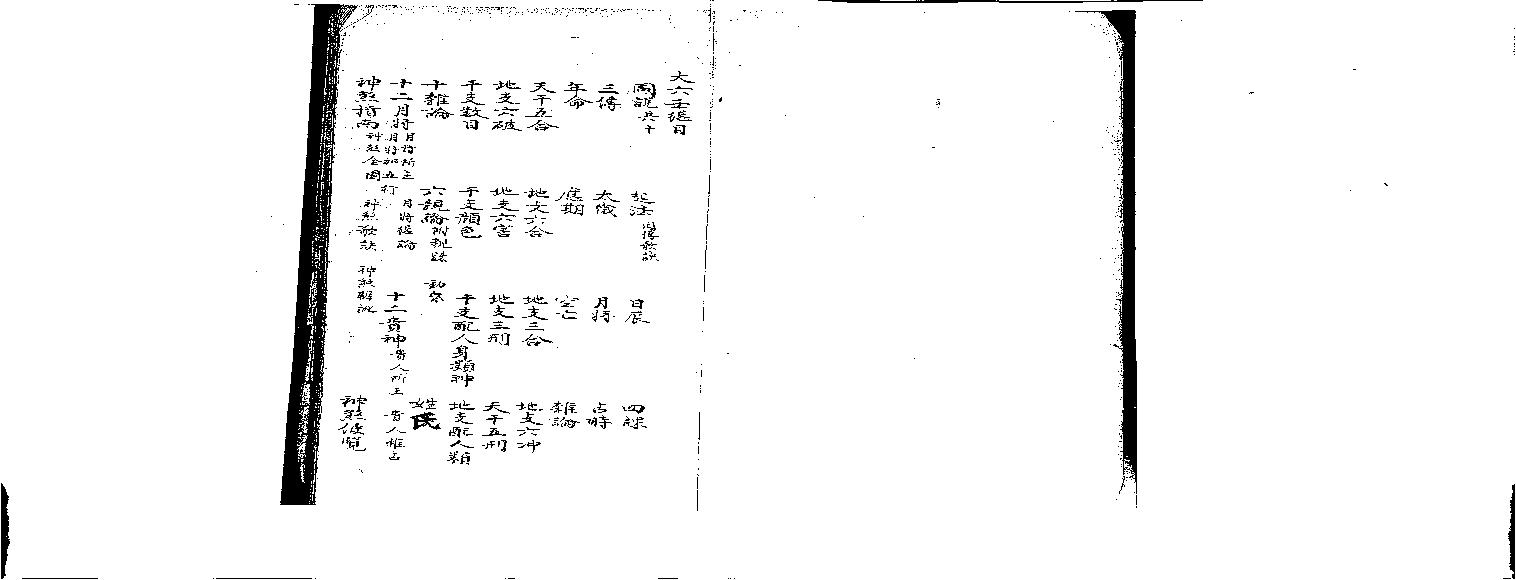 大六壬總目
圖說共十 起法 日辰 四課
三傳 太歲 月將 占時
年命 應期 空亡 雜論
天干五合 地支六合 地支三合 地支六冲
地支六破 地支六害 地支三刑 天干五刑
干支數目 干支顏色 干支配人身類神 地支配人類
十雜論 六親論 姓氏
十二月將 月將所主 月將加五行 月將總論 十二貴神 貴人所主 貴人推占
神煞指南 神煞全圖 神煞歌訣 神煞解說 神煞便覽